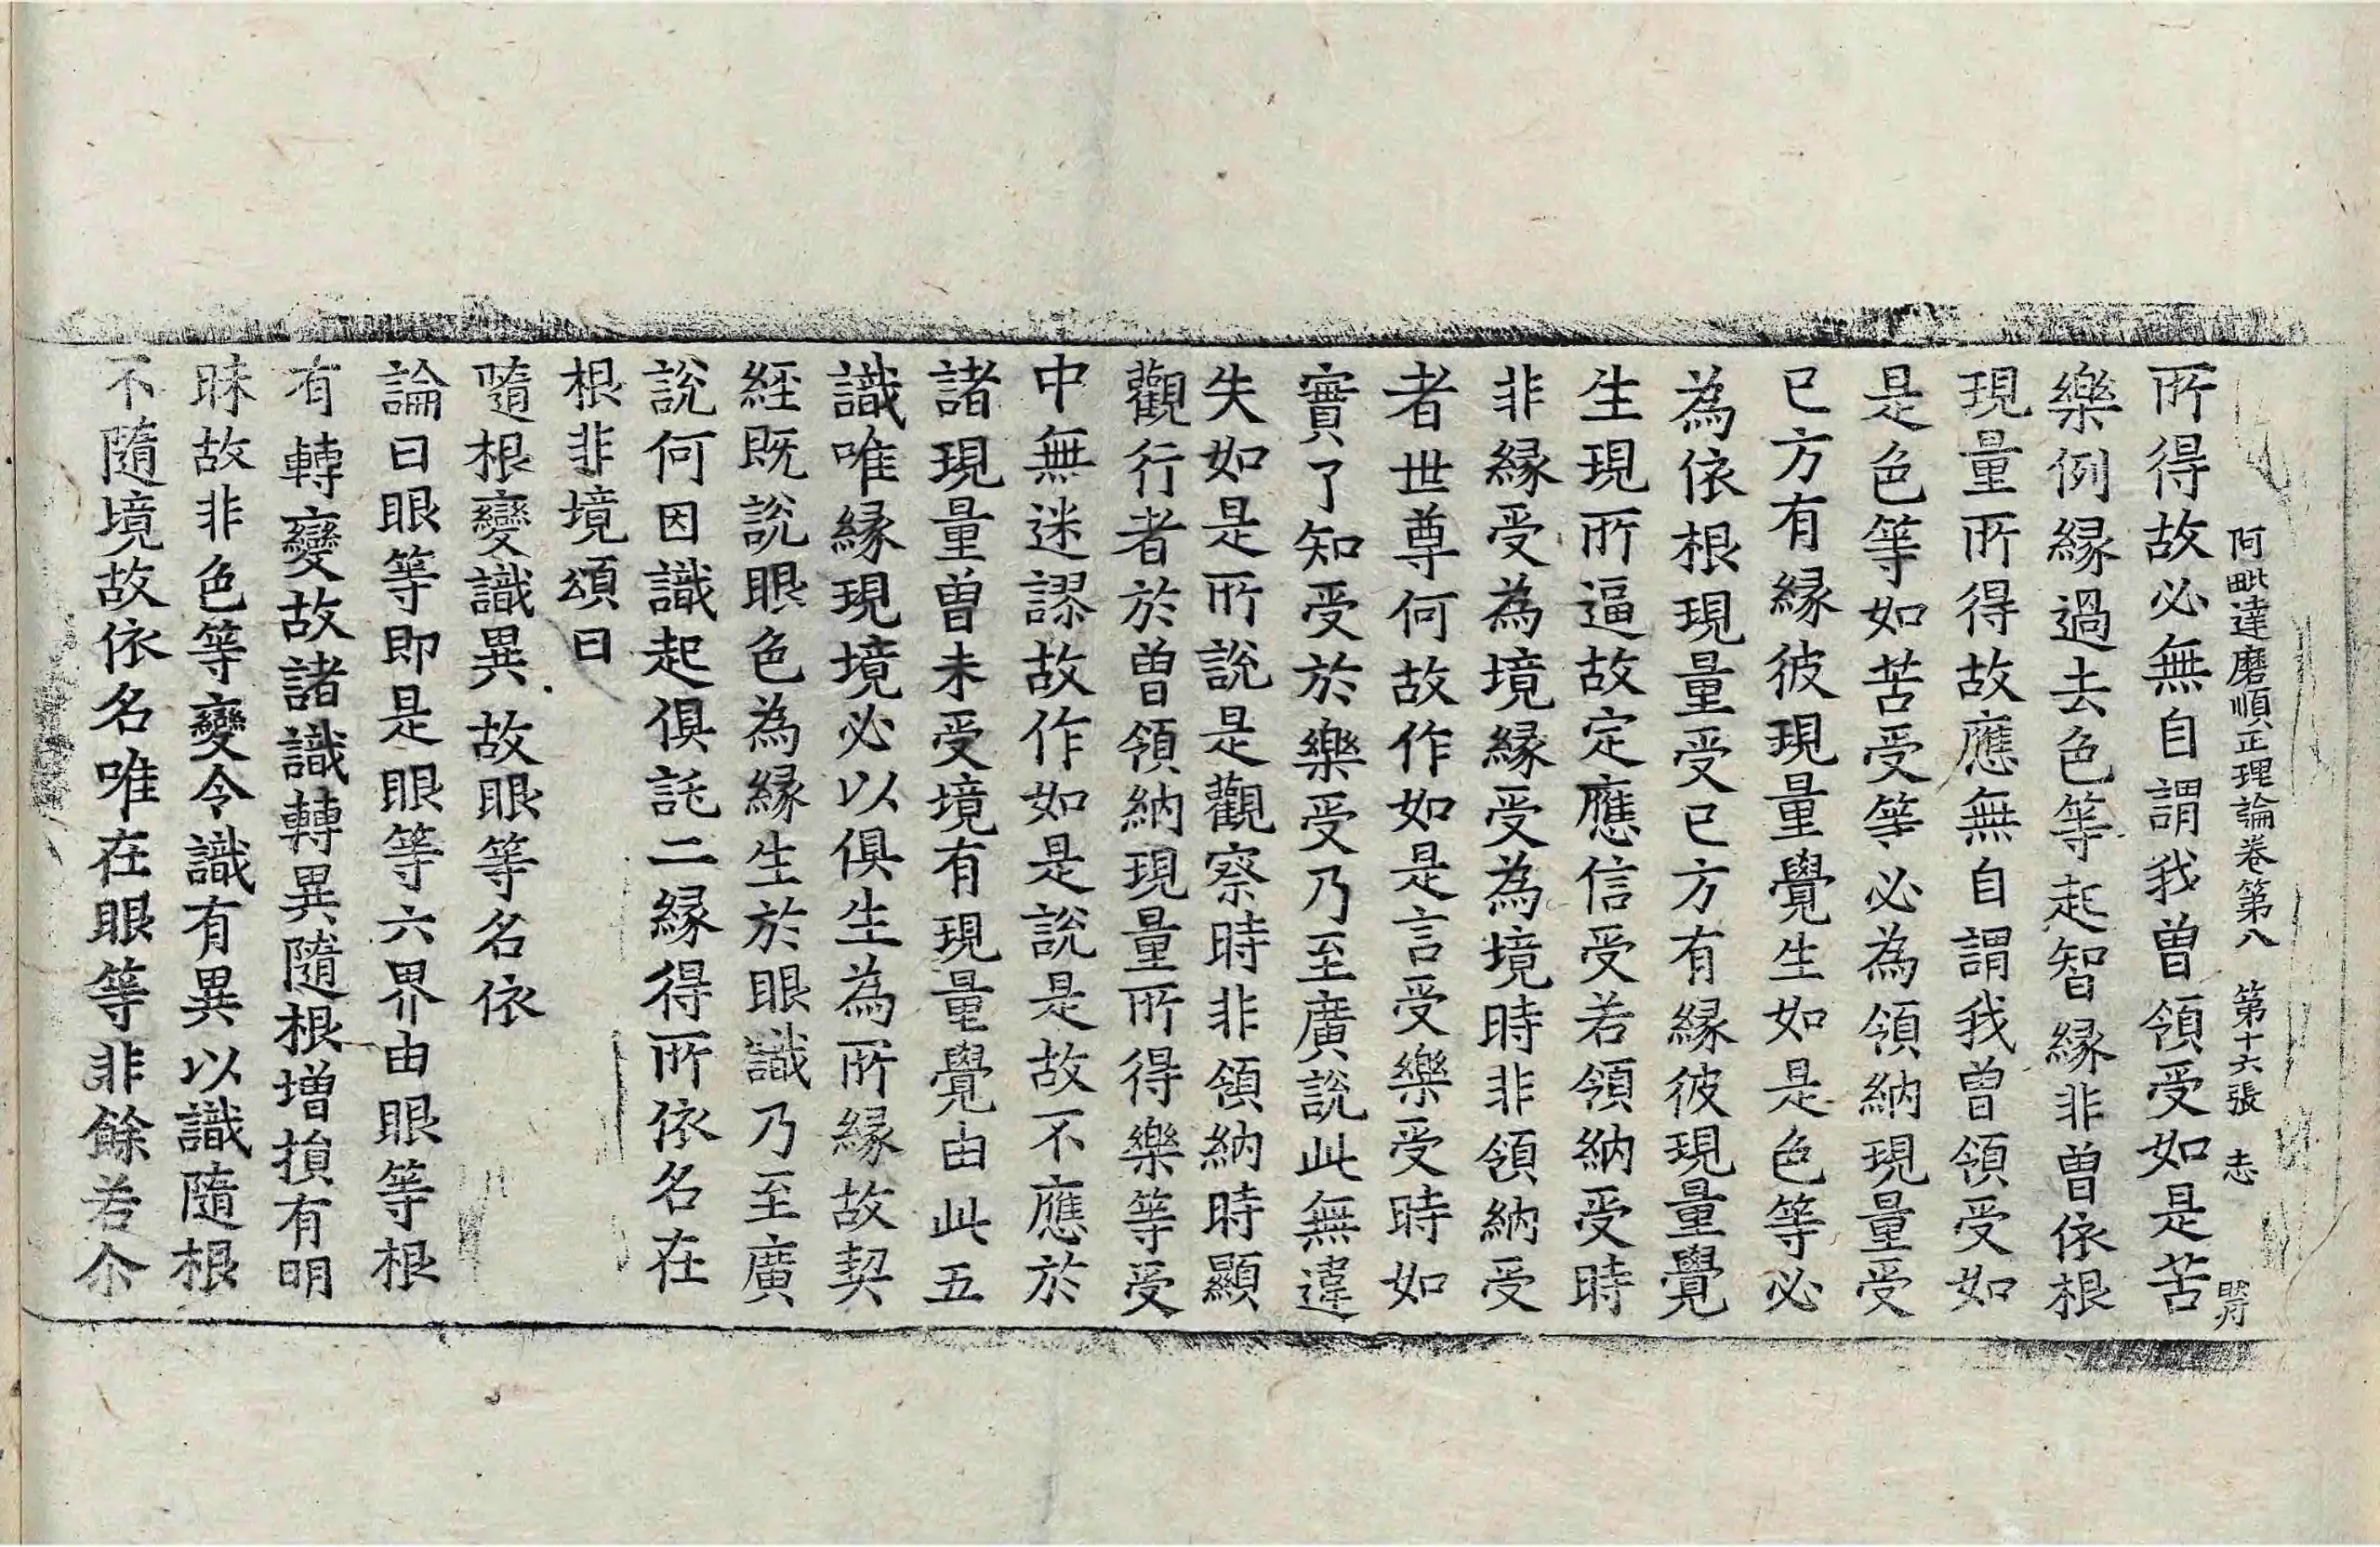 阿毗達磨順正理論卷第八 第十六張 志
所得故必無自謂我曾領受如是苦
樂例緣過去色等起智緣非曾依根
現量所得故應無自謂我曾領受如
是色等如苦受等必為領納現量受
已方有緣彼現量覺生如是色等必
為依根現量受已方有緣彼現量覺
生現所逼故定應信受若領納受時
非緣受為境緣受為境時非領納受
者世尊何故作如是言受樂受時如
實了知受於樂受乃至廣說此無違
失如是所說是觀察時非領納時顯
觀行者於曾領納現量所得樂等受
中無迷謬故作如是說是故不應於
諸現量曾未受境有現量覺由此五
識唯緣現境必以俱生為所緣故契
經既說眼色為緣生於眼識乃至廣
說何因識起俱託二緣得所依名在
根非境頌曰
隨根變識異 故眼等名依
論曰眼等即是眼等六界由眼等根
有轉變故諸識轉異隨根增損有明
昧故非色等變令識有異以識隨根
不隨境故依名唯在眼等非餘若尒